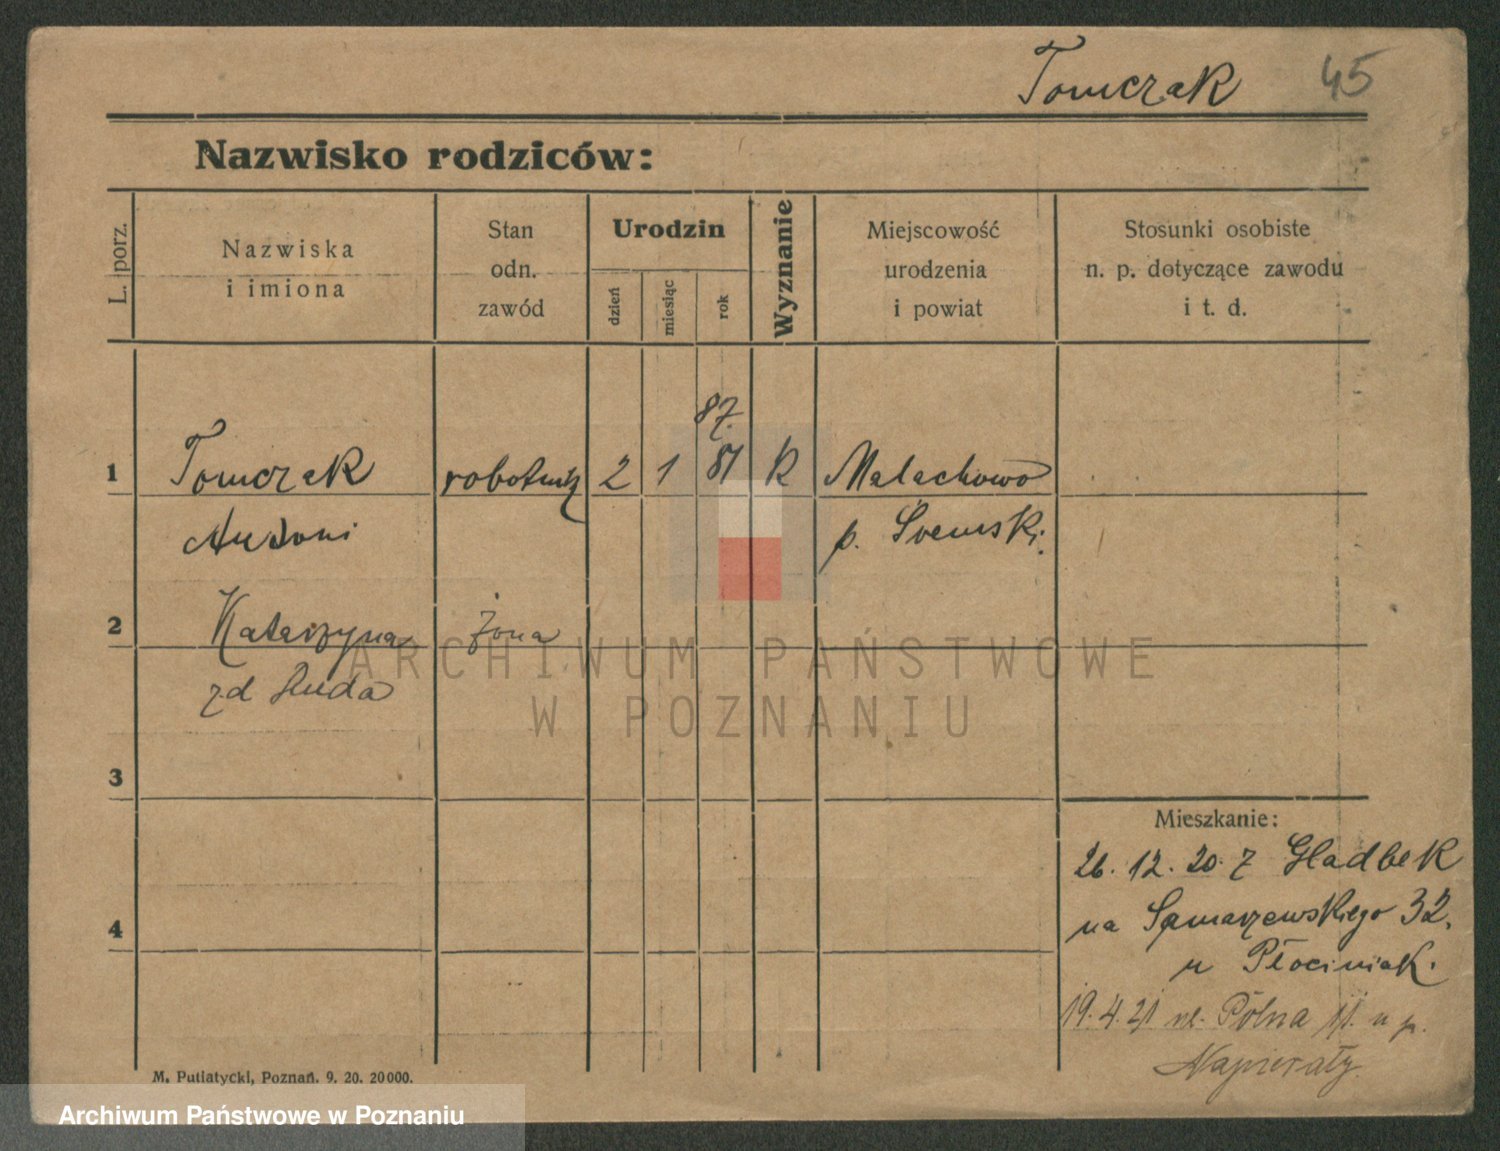 Tomczak 45
Nazwisko rodziców:
L. porz.
Nazwiska
i imiona
Stan
odn.
zawód
Urodzin
dzień
miesiąc
rok
Wyznanie
Miejscowość
urodzenia
i powiat
Stosunki osobiste
n. p. dotyczące zawodu
i t. d.
87.
1 Tomczak robotnik 2 1 81 k Malachowo
Antoni p. Śremski.
2 Katarzyna żona
zd Ruda
3
4
Mieszkanie:
26. 12. 20. z Gladbek
na Samarzewskiego 32.
u Płociniak.
19. 4. 21 ul. Polna 11. u p.
Napierały.
M. Putiatycki, Poznań. 9. 20. 20000.
ARCHIWUM PAŃSTWOWE
W POZNANIU
Archiwum Państwowe w Poznaniu